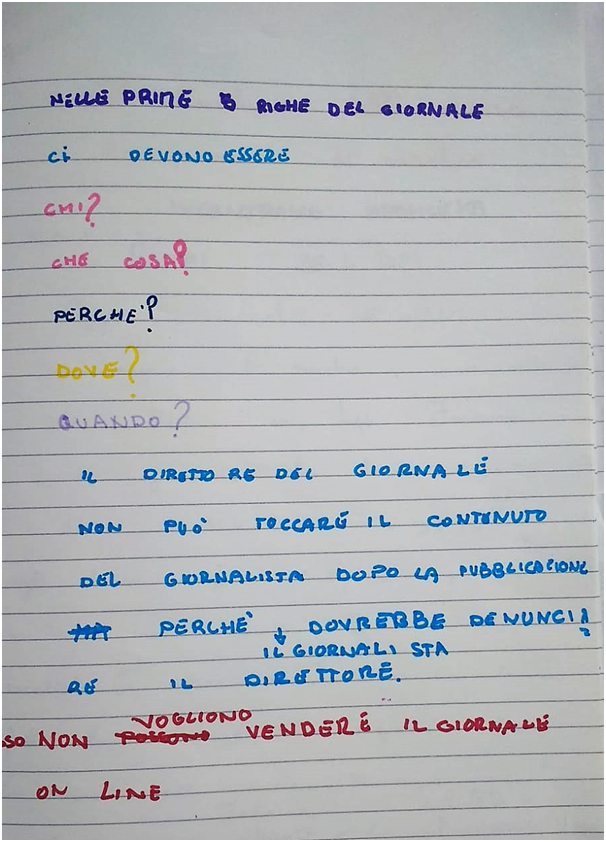 NELLE PRIME 5 RIGHE DEL GIORNALE
Ci DEVONO ESSERE
CHI?
CHE COSA?
PERCHE'?
DOVE?
QUANDO?
IL DIRETTORE DEL GIORNALE
NON PUO' TOCCARE IL CONTENUTO
DEL GIORNALISTA DOPO LA PUBBLICAZIONE
PERCHE' ↓ DOVREBBE DENUNCIA
IL GIORNALISTA
RE IL DIRETTORE.
VOGLIONO
SO NON POSSONO VENDERE IL GIORNALE
ON LINE